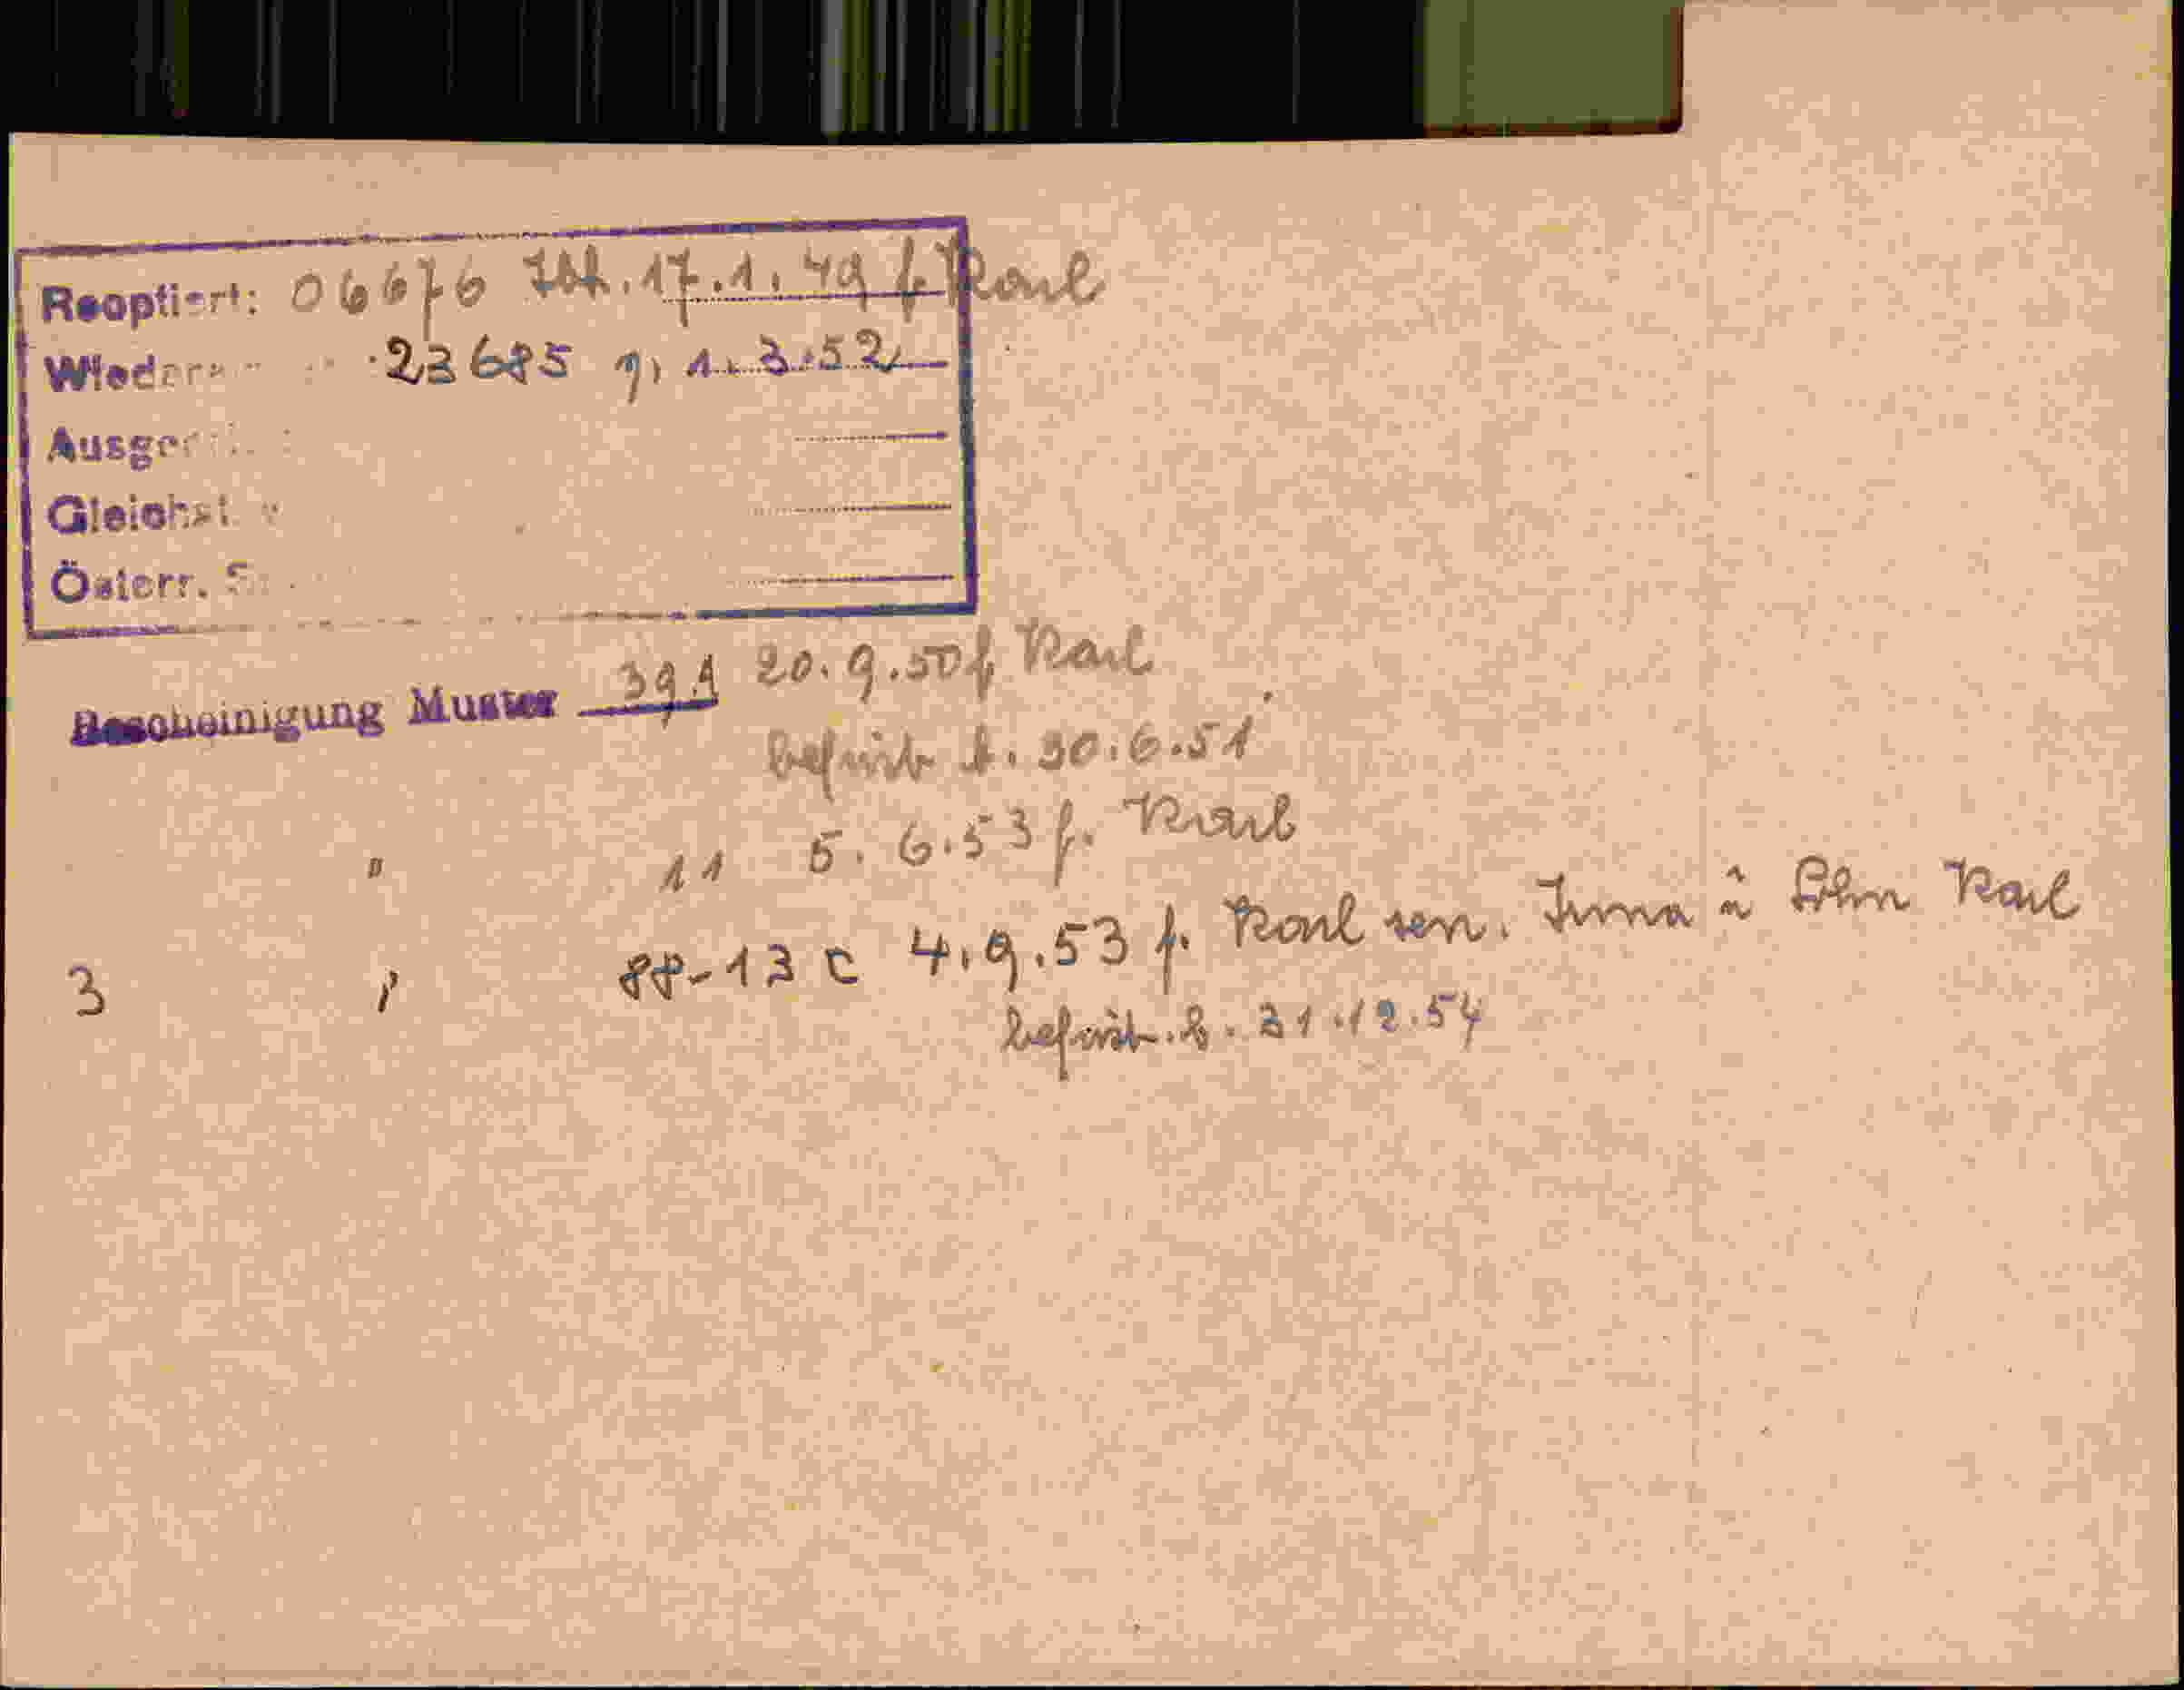 Reoptiert: 06676 17.1.49 f. Karl
23685 1.3.52
Österr.
Bescheinigung Muster 39A 20.9.50 f. Karl
befrist. b. 30.6.51
" 11 5.6.53 f. Karl
3 " 88-13 c 4.9.53 f. Karl sen. Irma u Sohn Karl
befrist. b. 31.12.54